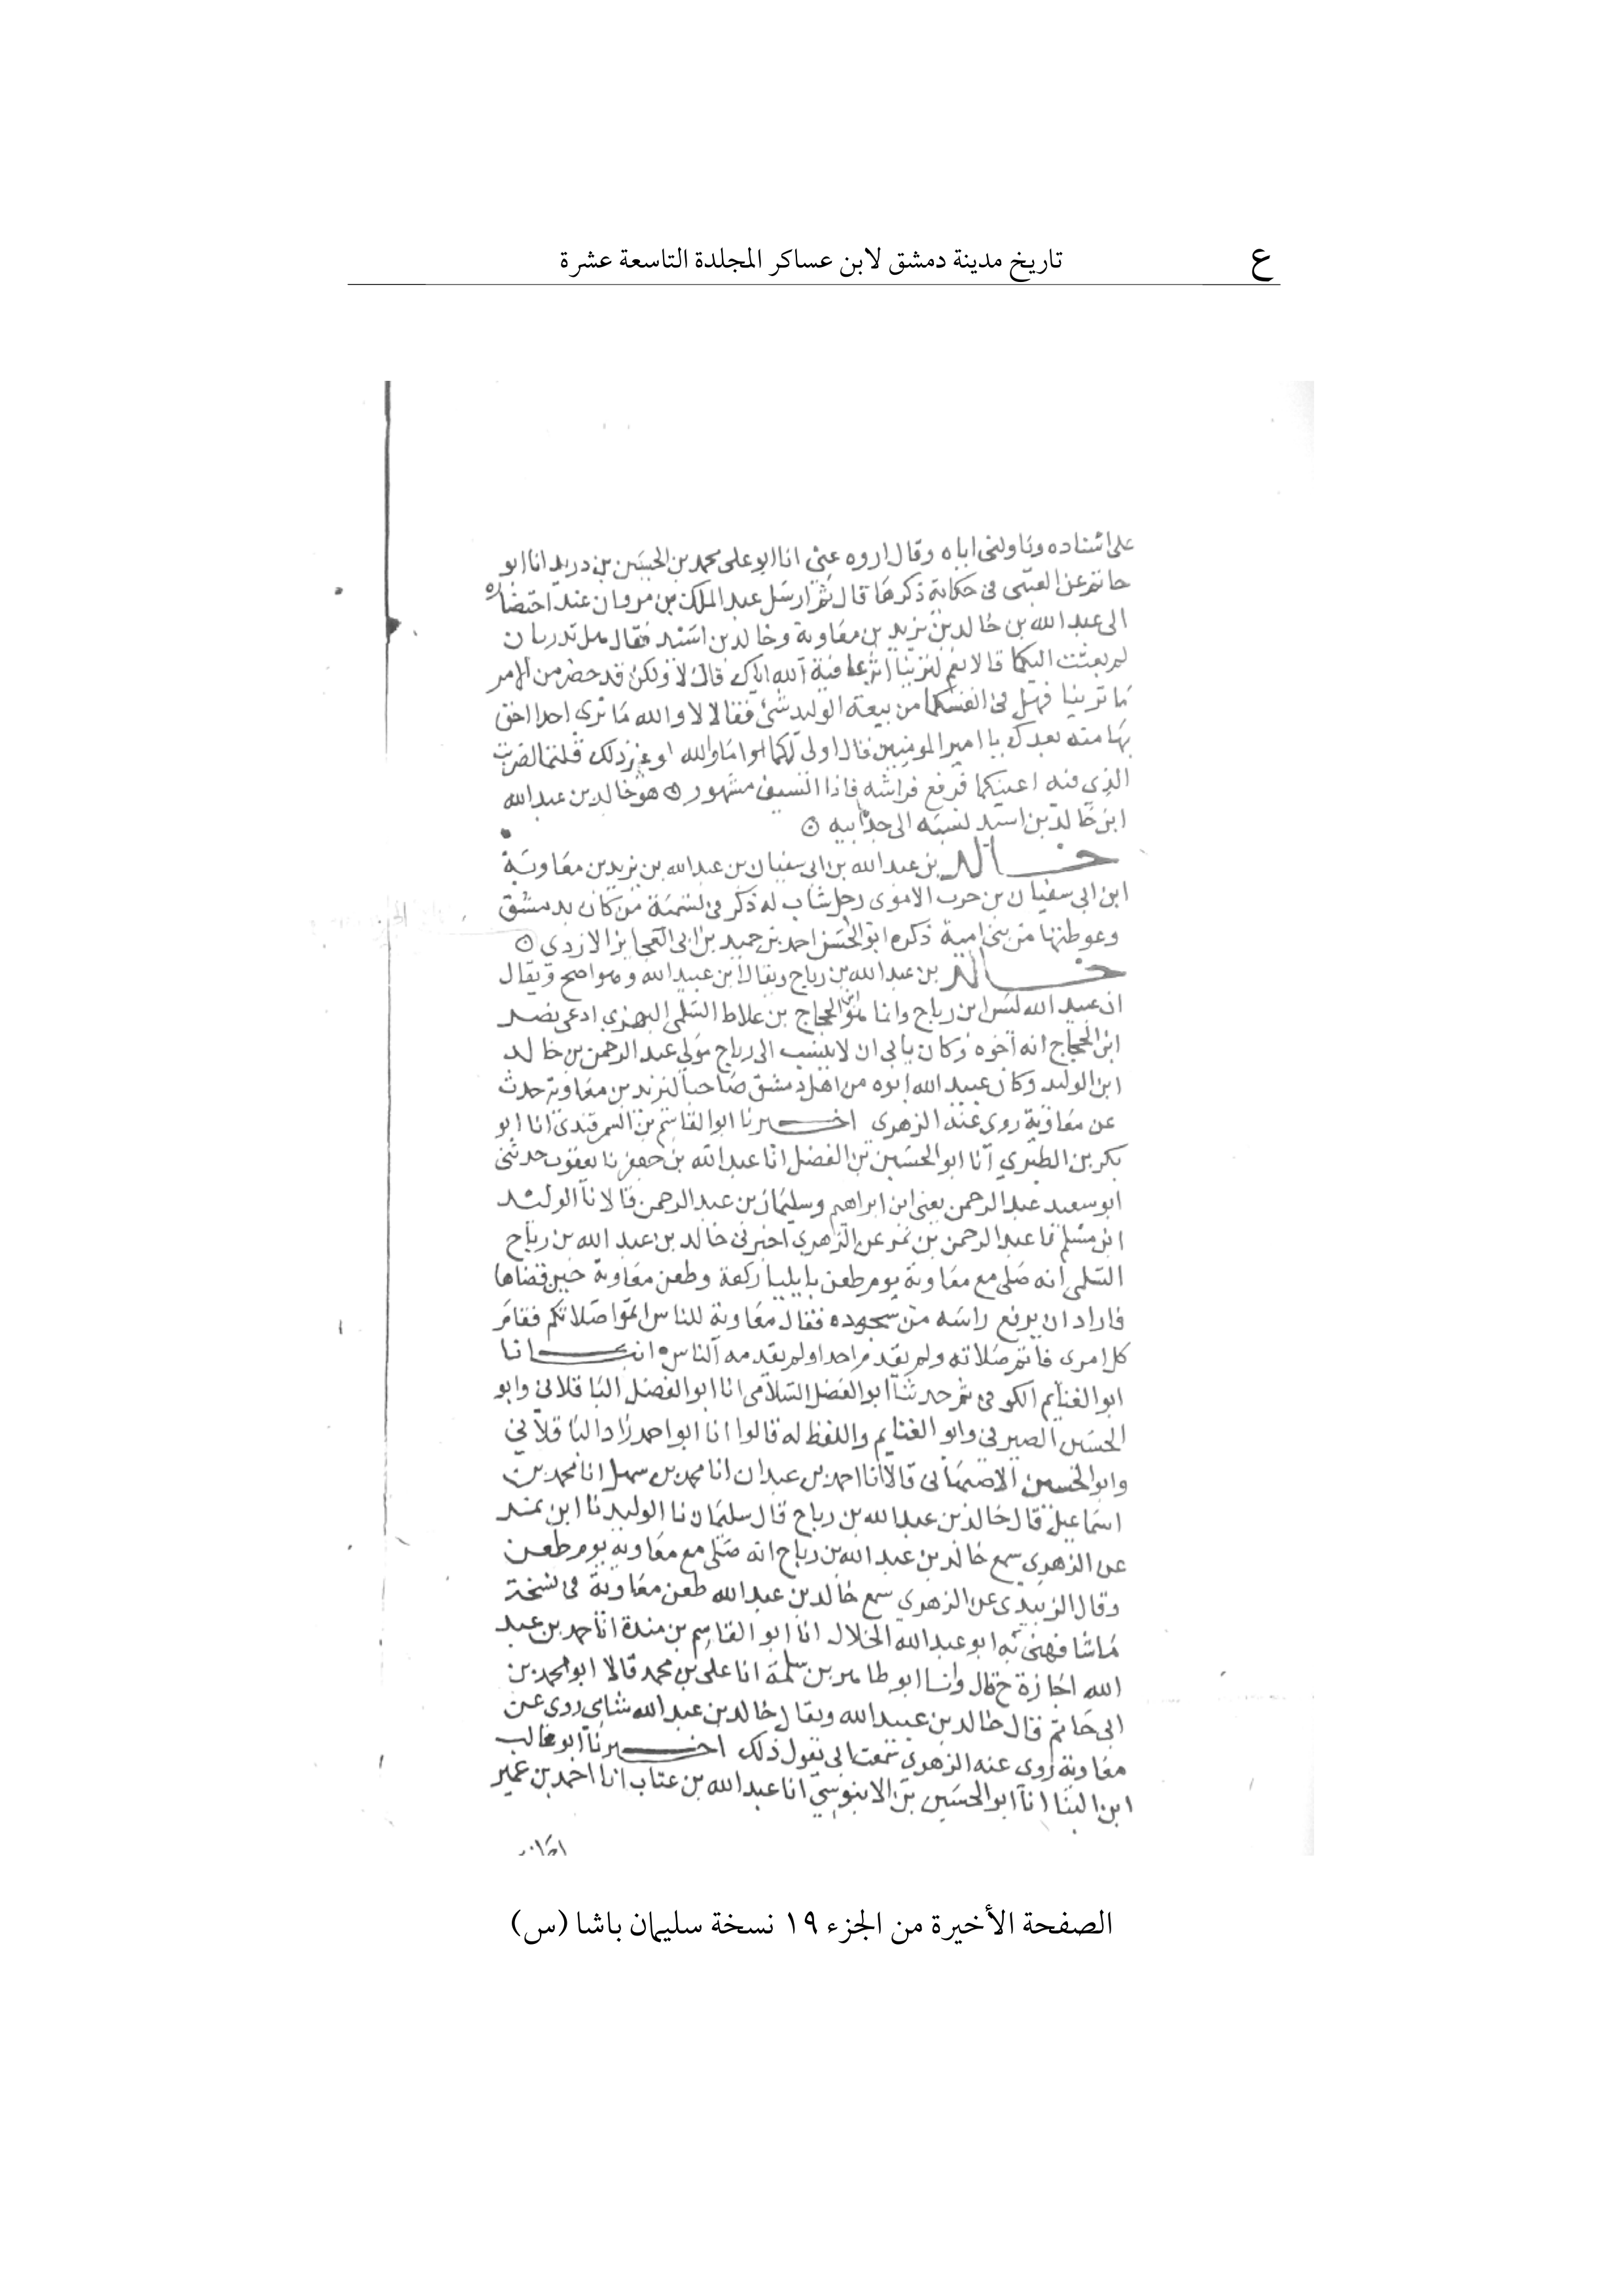 ع
تاريخ مدينة دمشق لابن عساكر المجلدة التاسعة عشرة
على اسناده وناولنى اياه وقال اروه عنى انا ابو على محمد بن الحسين بن دريد انا ابو
حاتم عن العتبى فى حكاية ذكرها قال ثم ارسل عبد الملك بن مروان عند احتضاره
الى عبد الله بن خالد بن يزيد بن معاوية وخالد بن اسيد فقال هل تدريان
لم بعثت اليكما قالا نعم لترينا اثر عافية الله اياك قال لا ولكن قد حضر من الامر
ما تريا فهل فى انفسكما من بيعة الوليد شئ فقالا لا والله ما نرى احدا احق
بها منه بعدك يا امير المومنين قال اولى لكما اما والله لو غير ذلك قلتما لضربت
الذي فيه اعينكما فرفع فراشه فاذا السيف مشهور ه هو خالد بن عبد الله
ابن خالد بن اسيد نسبه الى جد ابيه ه
خالد بن عبد الله بن ابى سفيان بن عبد الله بن يزيد بن معاوية
ابن ابي سفيان بن حرب الاموى رجل شاب له ذكر فى تسمية من كان بدمشق
وغوطتها من بنى امية ذكره ابو الحسن احمد بن حميد بن ابى العجايز الازدى ه
خالد بن عبد الله بن رباح ويقال ابن عبيد الله وهو اصح ويقال
ان عبيد الله ليس ابن رباح وانما هو ابن الحجاج بن علاط السلمى البهزي ادعى نصر
ابن الحجاج انه اخوه وكان يابى ان لا ينتسب الى رباح مولى عبد الرحمن بن خالد
ابن الوليد وكان عبيد الله ابوه من اهل دمشق صاحبا ليزيد بن معاوية حدث
عن معاوية روى عنه الزهرى اخبرنا ابو القاسم بن السمرقندى انا ابو
بكر بن الطبري انا ابو الحسين بن الفضل انا عبد الله بن جعفر نا يعقوب حدثنى
ابو سعيد عبد الرحمن يعنى ابن ابراهيم وسليمان بن عبد الرحمن قالا نا الوليد
ابن مسلم نا عبد الرحمن بن نمر عن الزهري اخبرنى خالد بن عبد الله بن رباح
السلمى انه صلى مع معاوية يوم طعن بايليا ركعة وطعن معاوية حين قضاها
فاراد ان يرفع راسه من سجوده فقال معاوية للناس اتموا صلاتكم فقام
كل امرى فاتم صلاته ولم يقدم احدا ولم يقدمه الناس ه انبانا
ابو الغنايم الكوفى ثم حدثنا ابو الفضل السلامى انا ابو الفضل الباقلانى وابو
الحسين الصيرفى وابو الغنايم واللفظ له قالوا انا ابو احمد زاد الباقلاني
وابو الحسين الاصبهانى قالا انا احمد بن عبدان انا محمد بن سهل انا محمد بن
اسماعيل قال خالد بن عبد الله بن رباح قال سليمان نا الوليد نا ابن نمر
عن الزهرى سمع خالد بن عبد الله بن رباح انه صلى مع معاوية يوم طعن
وقال الزبيدى عن الزهري سمع خالد بن عبد الله طعن معاوية فى نسخة
ما شافهنى به ابو عبد الله الخلال انا ابو القاسم بن مندة انا حمد بن عبد
الله اجازة ح قال وانا ابو طاهر بن سلمة انا على بن محمد قالا ابو محمد بن
ابى حاتم قال خالد بن عبيد الله ويقال خالد بن عبد الله شامى روى عن
معاوية روى عنه الزهري سمعت ابى يقول ذلك اخبرنا ابو غالب
ابن البنا انا ابو الحسين بن الابنوسي انا عبد الله بن عتاب انا احمد بن عمير
اجازه
الصفحة الأخيرة من الجزء ١٩ نسخة سليمان باشا (س)